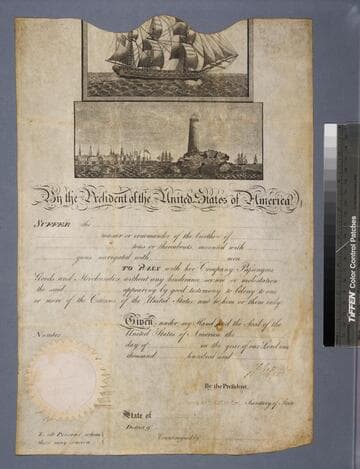 By the President of the United States of America,
SUFFER the
master or commander of the burthen of
tons or thereabouts, mounted with
guns navigated with men
TO PASS with her Company, Passengers
Goods and Merchandize without any hindrance, seizure or molestation
the said appearing by good testimony to belong to one
or more of the Citizens of the United States and to him or them only.
Given under my Hand and the Seal of the
United States of America the
day of in the year of our Lord one
thousand hundred and
Number
By the President,
Secretary of State
State of
District of
Countersigned by
To all Persons whom
these may concern
TIFFEN Color Control Patches